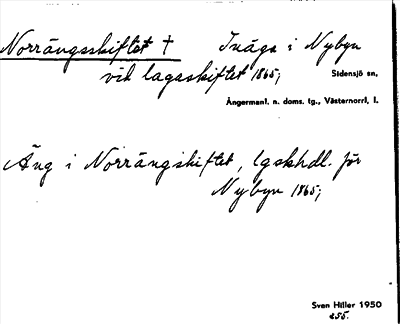 Norrängsskiftet † Inäga i Nybyn
vik lagaskiftet 1865;
Sidensjö sn,
Ångermanl. n. doms. tg., Västernorrl. l.
Äng i Norrängskiftet, lgskhdl. för
Nybyn 1865;
Sven Hiller 1950
255.